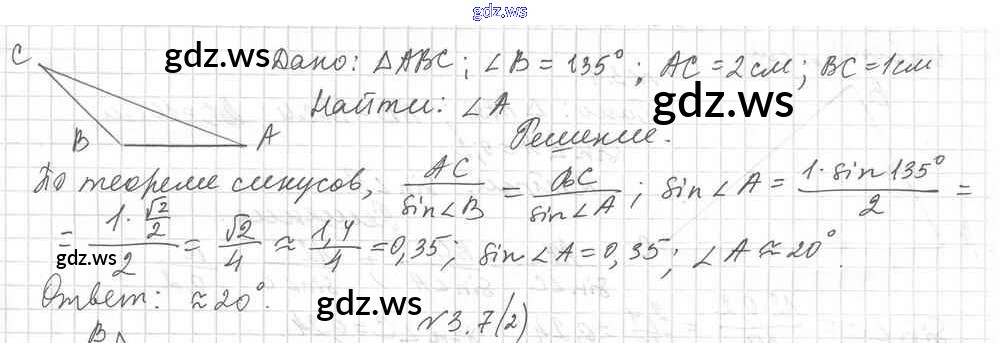 gdz.ws
C
gdz.ws Дано: △ABC; ∠B = 135°; AC = 2 см; BC = 1 см
Найти: ∠A gdz.ws
B A Решение.
По теореме синусов, AC/sin∠B = BC/sin∠A; sin∠A = 1·sin135°/2 =
= (1·√2/2)/2 = √2/4 ≈ 1,4/4 = 0,35; sin∠A = 0,35; ∠A ≈ 20°.
gdz.ws
Ответ: ≈ 20°. gdz.ws
B N3.7(2)